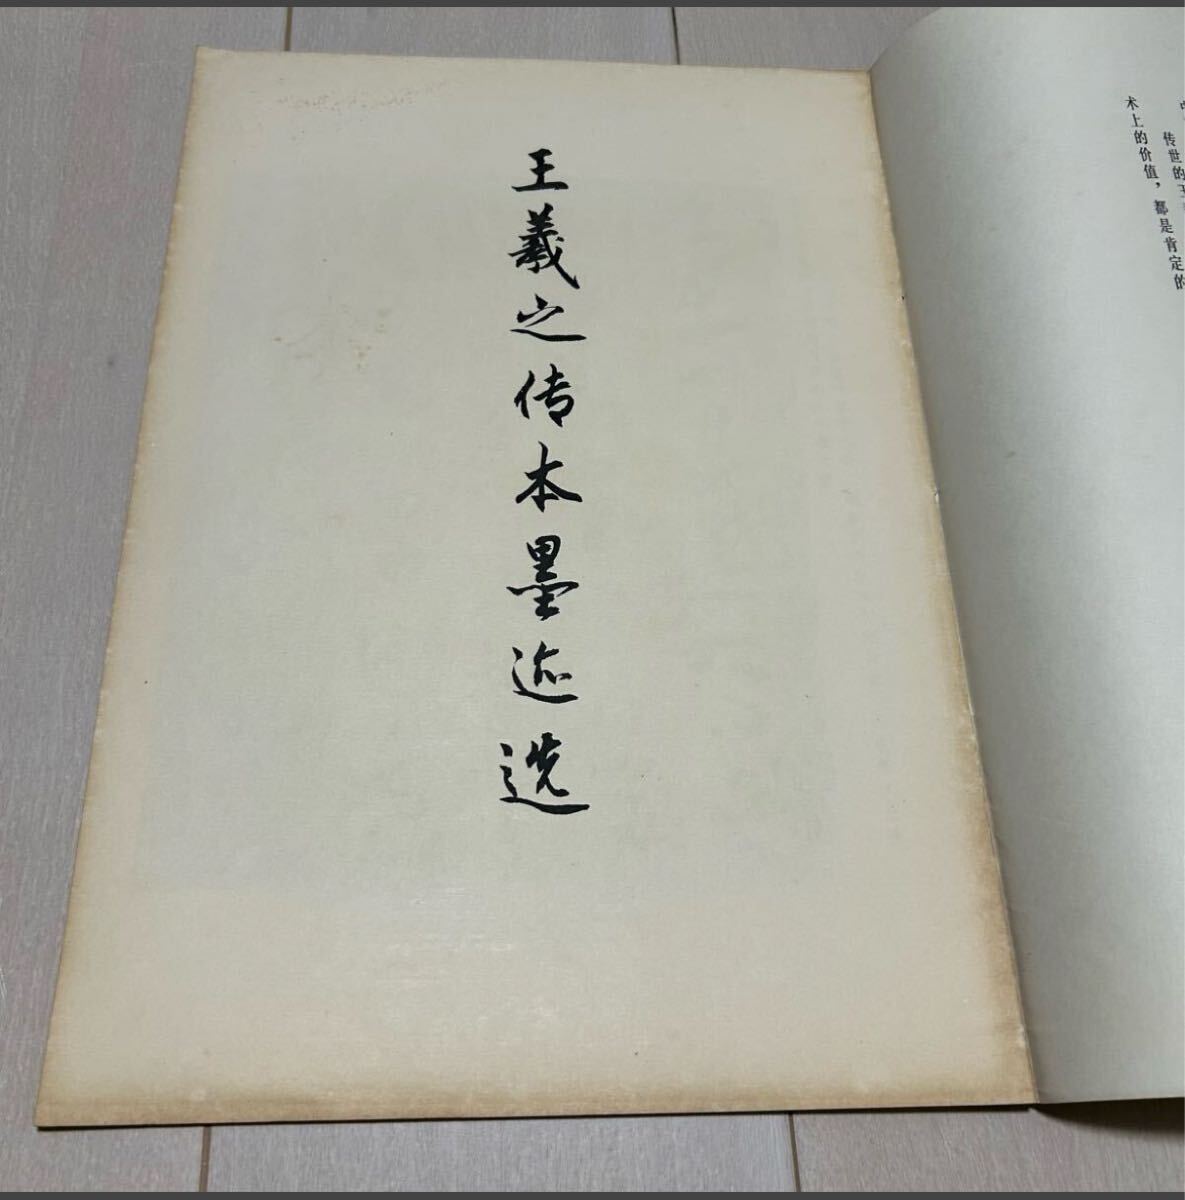 传世的王
术上的价值，都是肯定的
王羲之传本墨迹选